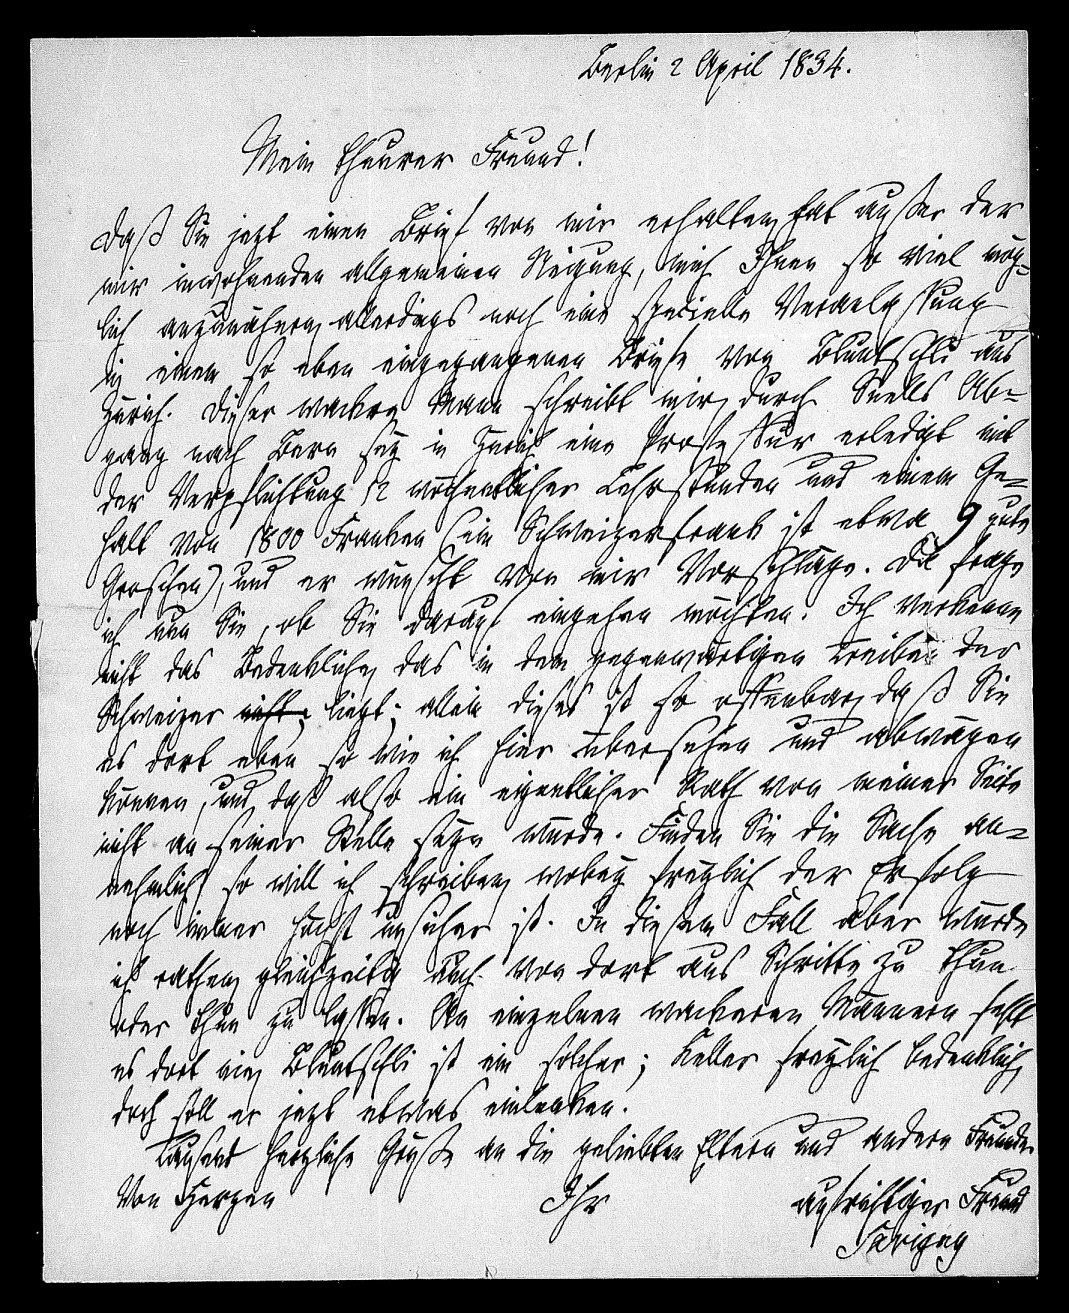 Berlin 2 April 1834.
Mein theurer Freund!
Daß Sie jetzt einen Brief von mir erhalten, hat außer der
mir inwohnenden allgemeinen Neigung, mich Ihnen so viel mög-
lich anzunähern, allerdings noch eine specielle Veranlassung
in einem so eben eingegangenen Briefe von Bluntschli aus
Zürich. Dieser wackre Mann schreibt mir, durch Snells Ab-
gang nach Bern sey in Zürich eine Professur erledigt mit
der Verpflichtung 12 wöchentlicher Lehrstunden und einem Ge-
halt von 1800 Franken (ein Schweizerfrank ist etwa 9 gute
Groschen), und er wünscht von mir Vorschläge. Da frage
ich nun Sie, ob Sie darauf eingehen möchten. Ich verkenne
nicht das Bedenkliche, das in dem gegenwärtigen Treiben der
Schweizer nicht, liegt; allein dieses ist so offenbar, daß Sie
es dort eben so wie ich hier übersehen und abwägen
können, und daß also ein eigentlicher Rath von meiner Seite
nicht an seiner Stelle seyn würde. Finden Sie die Sache an-
nehmlich, so will ich schreiben, wobey freylich der Erfolg
noch immer höchst unsicher ist. In diesem Fall aber würde
ich rathen, gleichzeitig auch von dort aus Schritte zu thun
oder thun zu lassen. An einzelnen wackeren Männern fehlt
es dort nie, Bluntschli ist ein solcher; Keller freylich bedenklich,
doch soll er jetzt etwas einlenken.
Tausend herzliche Grüße an die geliebten Eltern und andern Freunde.
Von Herzen Ihr aufrichtiger Freund
Savigny